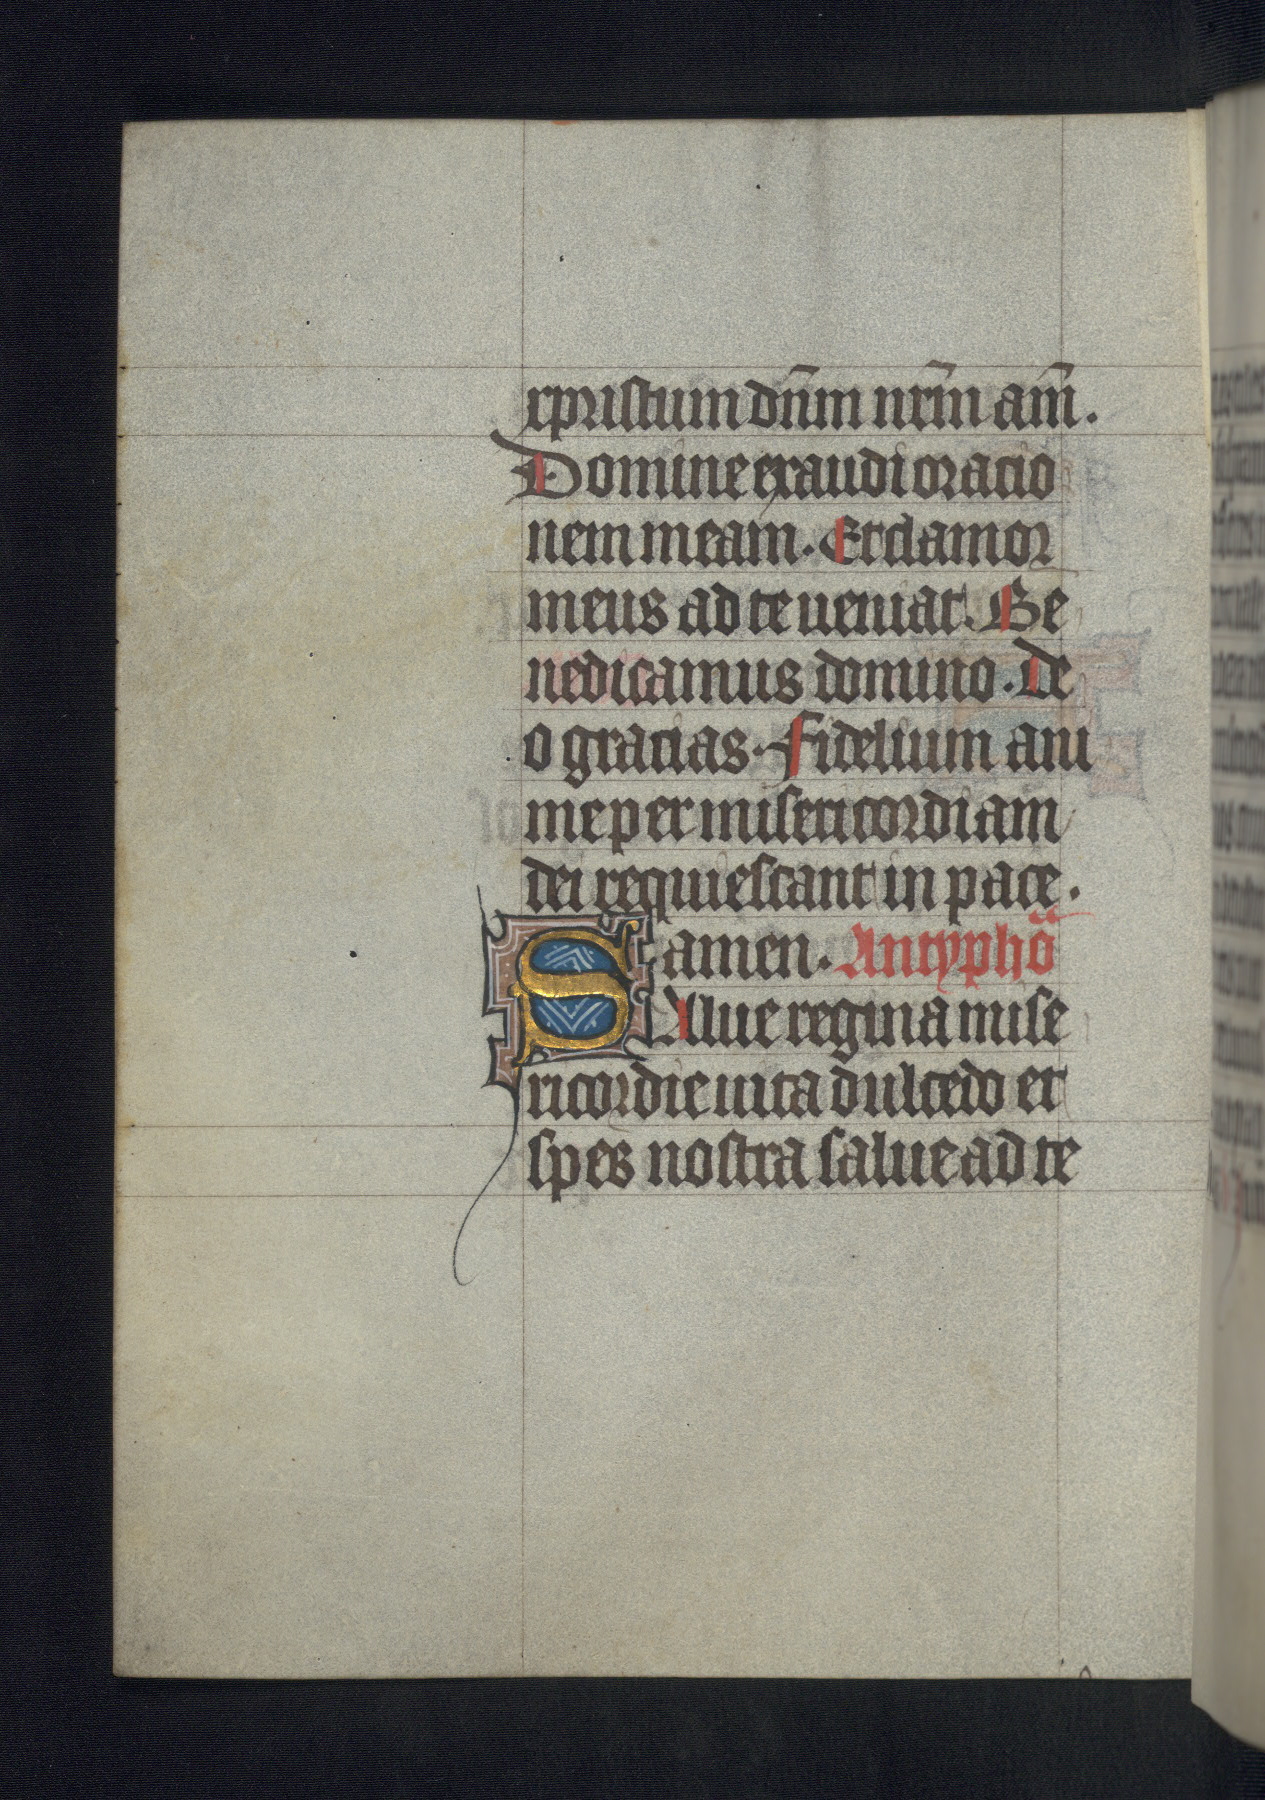 xpristum dn̄m nr̄m am̄.
Domine exaudi oracio
nem meam. Et clamor
meus ad te ueniat. Be
nedicamus domino. De
o gracias. Fidelium ani
me per misericordiam
dei requiescant in pace.
amen. Antyphō
SAlue regina mise
ricordie uita dulcedo et
spes nostra salue ad te